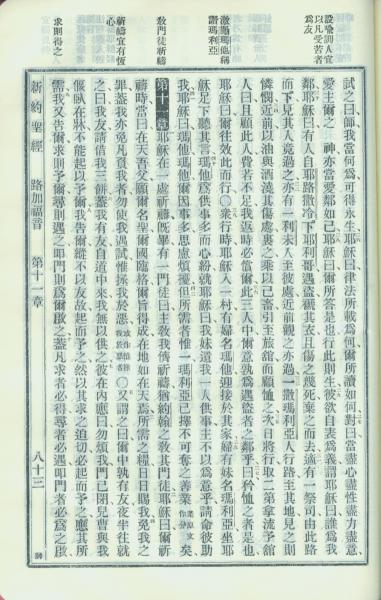 設喻訓人宜
以凡受苦者
為友
激勵瑪他稱
讚瑪利亞
教門徒祈禱
祈禱宜有恆
心
求則得之
試之曰師我當何為可得永生耶穌曰律法所載為何爾所讀如何對曰當盡心盡性盡力盡意
愛主爾之 神亦當愛鄰如己耶穌曰爾所答是也行此則生彼欲自表為義謂耶穌曰誰為我
鄰耶穌曰有人自耶路撒冷下耶利哥遇盜褫其衣且傷之幾死棄之而去適有一祭司由此路
而下見其人竟過之亦有一利未人至彼處近前觀之亦過一撒瑪利亞人行路至其地見之則
憐憫近前以油與酒澆其傷處裹之乘以己畜引至旅舘而顧恤之次日將行取二第拿流予舘
人曰且顧此人費若不足我返時必當償此三人中爾意孰為遇盜者之鄰乎曰矜恤之者是也
耶穌曰爾往效此而行○眾行時耶穌入一村有婦名瑪他迎接於其家婦有妹名瑪利亞坐耶
穌足下聽其言瑪他為供事多而心紛就耶穌曰我妹遺我一人供事主不以為意乎請命彼助
我耶穌曰瑪他瑪他爾因事多思慮煩擾但所需者惟一瑪利亞已擇不可奪之善業矣
第十一章耶穌在一處祈禱既畢有一門徒曰主教我儕祈禱猶約翰之教其門徒耶穌曰爾祈
禱時當曰在天吾父願爾名聖爾國臨格爾旨得成在地如在天焉所需之糧日日賜我免我之
罪蓋我亦免凡負我者勿使我遇試惟拯我於惡○又謂之曰爾中孰有友夜半往就
之曰我友請借我三餅蓋我有友自道中來我無以供之彼在內應曰勿煩我門已閉兒曹與我
偃臥在牀不能起以予爾我告爾縱不以友故起而予之然以其求之迫切必起而予之應其所
需我又告爾求則予爾尋則遇之叩門則為爾啟之蓋凡求者必得尋者必遇叩門者必為之啟
新約聖經 路加福音 第十一章 八十三